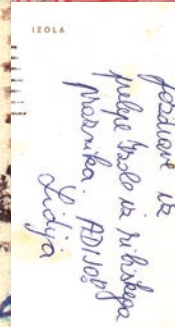 IZOLA
Pozdrave iz
prelepe Izole iz ribiškega
praznika. ADIJOO!
Lidija